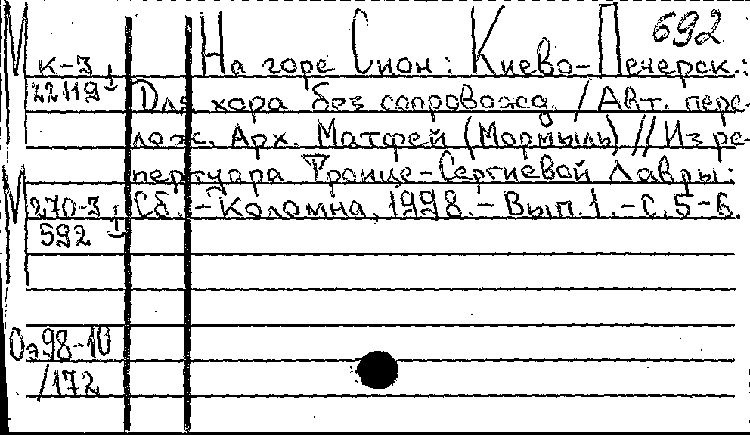 692
М к-3 На горе Сион: Киево-Печерск.:
22119 Для хора без сопровожд. / Авт. пере-
лож. Арх. Матфей (Мормыль) // Из ре-
пертуара Троице-Сергиевой Лавры:
М 270-3 Сб. - Коломна, 1998. - Вып. 1. - С. 5-6.
592
Оэ98-10
/172